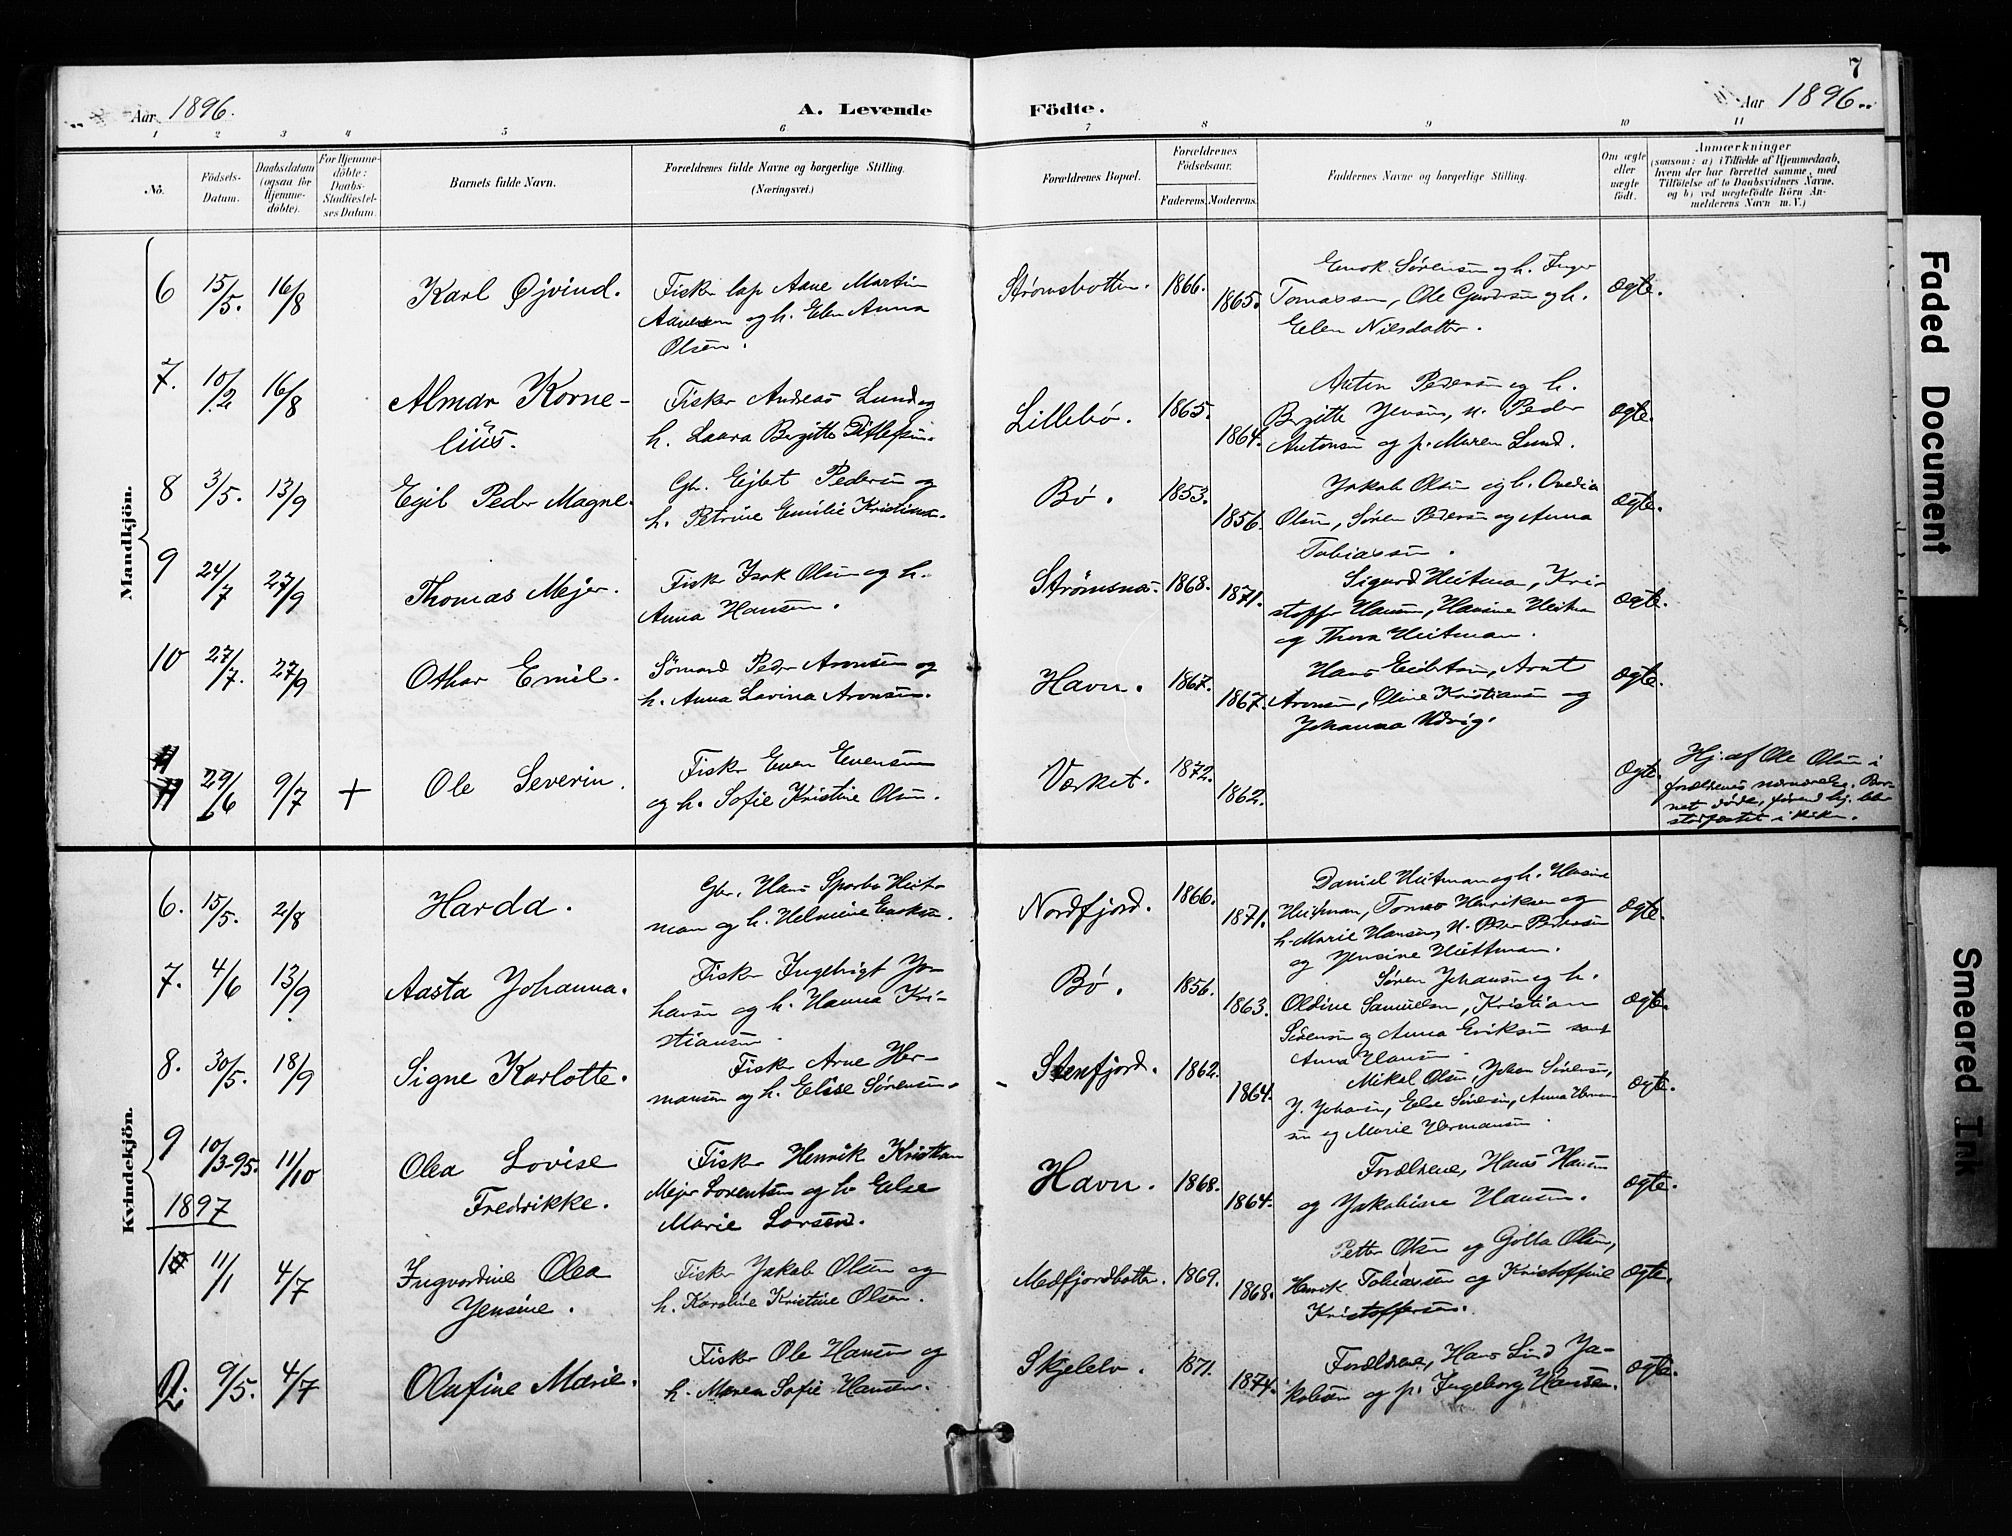 7
Aar 1896.
A. Levende Födte.
Aar 1896.
1 2 3 4 5 6 7 8 9 10 11
No.
Födsels-
Datum.
Daabsdatum
(ogsaa for
Hjemme-
döbte).
For Hjemme-
döbte:
Daabs-
Stadfæstel-
ses Datum.
Barnets fulde Navn.
Forældrenes fulde Navne og borgerlige Stilling.
(Næringsvei.)
Forældrenes Bopæl.
Forældrenes
Födselsaar.
Faderens. Moderens.
Faddernes Navne og borgerlige Stilling.
Om ægte
eller
uægte
födt.
Anmærkninger
(saasom: a) i Tilfælde af Hjemmedaab,
hvem der har forrettet samme, med
Tilföielse af to Daabsvidners Navne.
og b) ved uægtefödte Börn An-
melderens Navn m. V.)
Mandkjön.
6 15/5. 16/8 Karl Øjvind.
Fisker lap Aane Martin
Aanesen og h. Elen Anna
Olsen.
Strømsbotten. 1866. 1865.
Enok Sørensen og h. Inger
Tomassen, Ole og h.
Elen Nilsdatter.
Ægte.
7. 10/2 16/8 Almar Korne-
lius.
Fisker Andreas Lund og
h. Laura Birgitte Ditlefsen.
Lillebø. 1865. 1864.
Anton Pedersen og h.
Birgitte Jensen, u. Peder
Antonsen og p. Maren Lund.
ægte.
8 3/5. 13/9 Egil Peder Magne.
Gb. Ejlert Pedersen og
h. Petrine Emilie Kristiansen.
Bø. 1853. 1856.
Jakob Olsen og h. Ovedia
Olsen, Søren Pedersen og Anna
Tobiassen.
Ægte.
9 24/7 27/9 Thomas Mejer.
Fisker Isak Olsen og h.
Anna Hansen.
Strømsnes. 1868. 1871.
Sigurd Heitman, Kri-
stoffer Hansen, Hansine
og Thora Heitman.
ægte.
10 27/7. 27/9 Othar Emil.
Sömand Peder Aronsen og
h. Anna Lovina Aronsen.
Havn. 1867. 1867.
Hans Eilertsen, Arnt
Aronsen, Oline Kristiansen og
Johanna
Ægte.
11 29/6 9/7 + Ole Severin.
Fisker Even Evensen
og h. Sofie Kristine Olsen.
Værket. 1872. 1862.
Ægte.
Hj. af Ole Olsen i
forældrenes nærværelse. Bar-
net døde, førend hj. blev
stadfæstet i kirken.
Kvindekjön.
6. 15/5. 2/8 Harda.
Gbr. Hans Sparbo Heit-
man og h. Helmine
Nordfjord. 1866. 1871.
Daniel Heitman og h. Hansine
Heitman, Tomas Henriksen og
h. Marie Hansen, u. Peder Pedersen
og Jensine Heittman.
Ægte.
7. 4/6 13/9. Aasta Johanna.
Fisker Ingebrigt Jo-
hansen og h. Hanna Kri-
stiansen.
Bø. 1856. 1863.
Søren Johansen og h.
Oldine Samuelsen, Kristian
Sørensen og Anna Eriksen samt
Anna Hansen.
Ægte.
8. 30/5. 18/9 Signe Karlotte.
Fisker Arne Her-
mansen og h. Elise Sørensen.
Stenfjord. 1862. 1864.
Mikal Olsen, Johan Sørensen,
J. Johansen, Else Sørensen, Anna Herman-
sen og Marie Hermansen.
Ægte.
9 10/3-95. 11/10 Olea Lovise
Fredrikke.
Fisker Henrik Kristian
Mejer Lorentsen og h. Else
Marie Larsen.
Havn. 1868. 1864.
Forældrene, Hans Hansen
og Jakobine Hansen.
ægte.
1897
1 11/1 4/7 Ingvardine Olea
Jensine.
Fisker Jakob Olsen og
h. Karoline Kristine Olsen.
Medfjordbotten. 1869. 1868.
Petter Olsen og Golla Olsen,
Henrik Tobiassen og Kristoffine
Kristoffersen.
Ægte.
2. 9/5. 4/7 Olufine Marie.
Fisker Ole Hansen og
h. Maren Sofie Hansen.
Skjelelv. 1871. 1874.
Forældrene, Hans Lind Ja-
kobsen og p. Ingeborg Hansen.
Ægte.
Faded Document
Smeared Ink